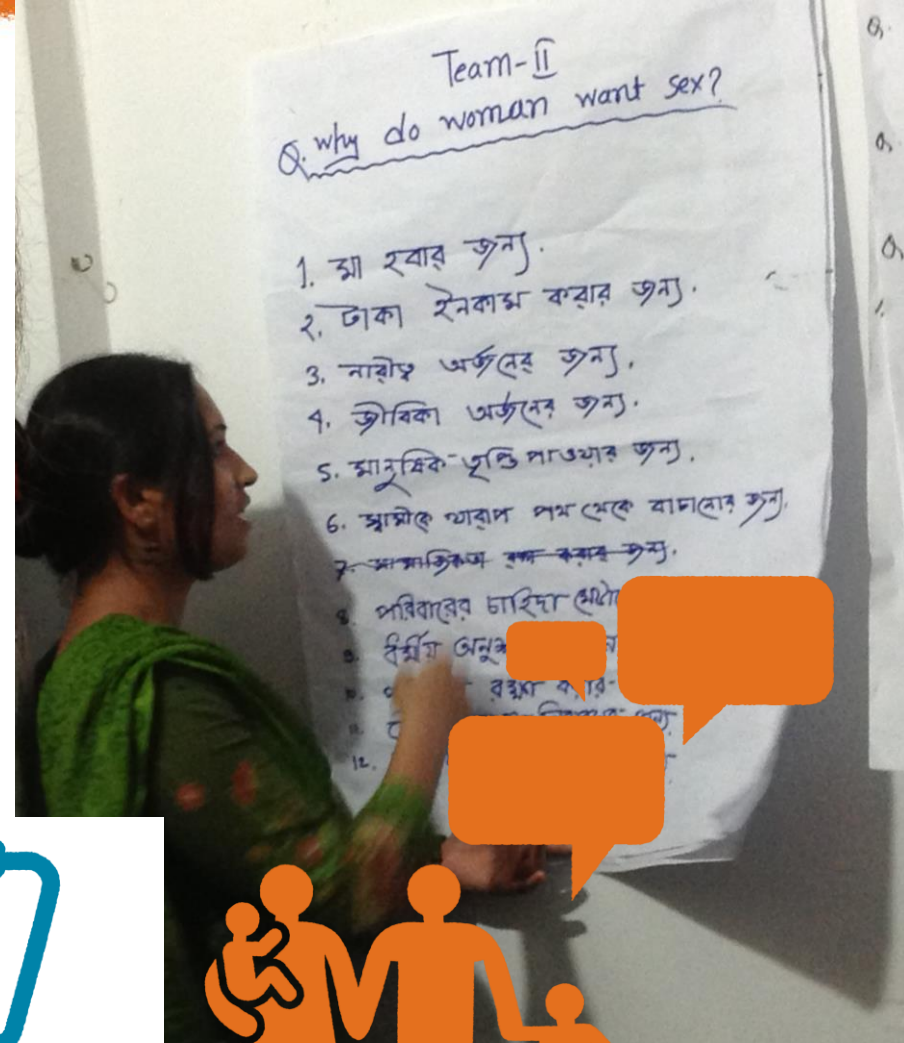 Team-II
Q. why do woman want sex?
1. মা হবার জন্য.
২. টাকা ইনকাম করার জন্য.
3. নারীত্ব অর্জনের জন্য.
4. জীবিকা অর্জনের জন্য.
5. মানুষিক তৃপ্তি পাওয়ার জন্য.
6. স্বামীকে খারাপ পথ থেকে বাচানোর জন্য.
7. সামাজিকতা রক্ষা করার জন্য.
8. পরিবারের চাহিদা
9. ধর্মীয়
রক্ষা করার
11.
জন্য
12.